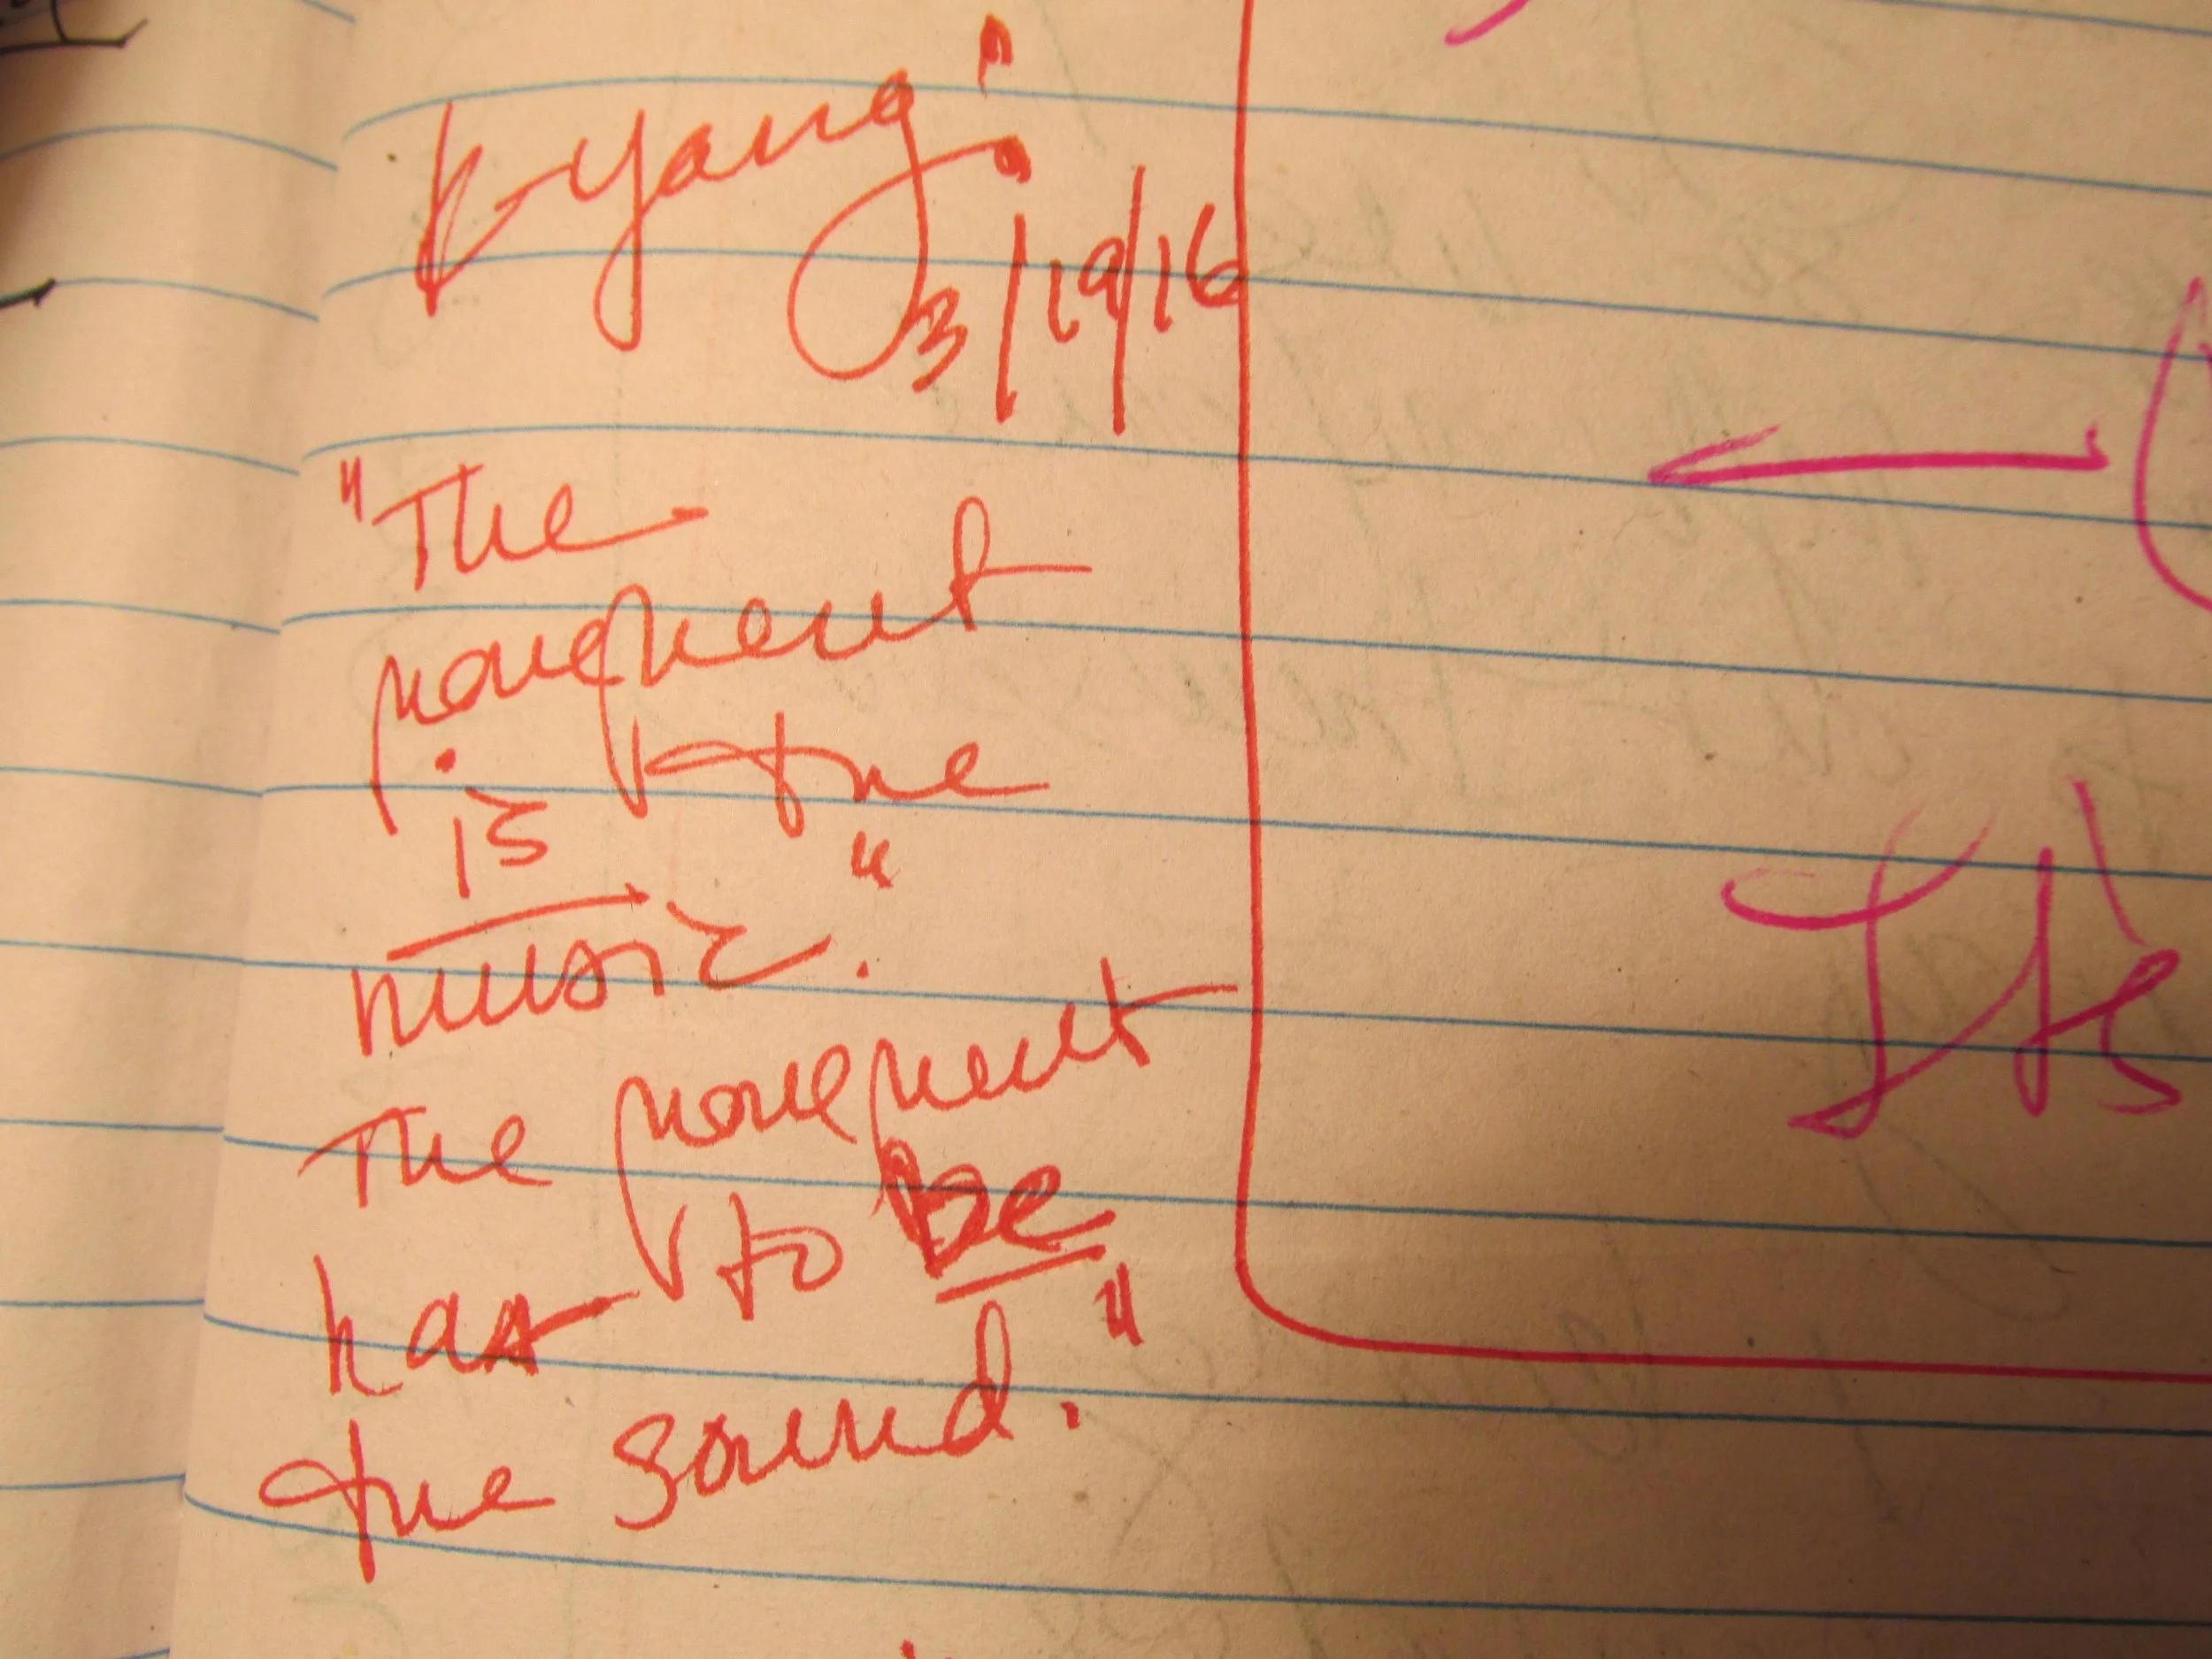 K-Yang:
3/19/16
"The
movement
is the
music."
The movement
has to be
the sound."
It's